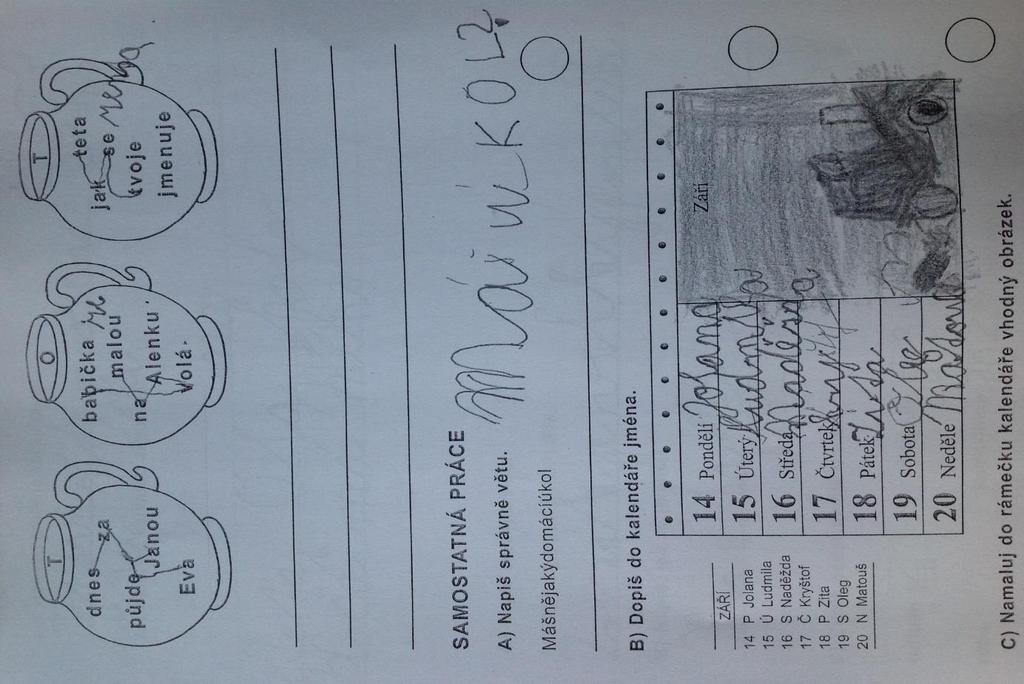 T
dnes za
půjde Janou
Eva
O
babička
malou
na Alenku.
Volá.
T
jak teta
se
tvoje
jmenuje
SAMOSTATNÁ PRÁCE
A) Napiš správně větu.
Mášnějakýdomácíúkol
B) Dopiš do kalendáře jména.
ZÁŘÍ
14 P Jolana
15 Ú Ludmila
16 S Naděžda
17 Č Kryštof
18 P Zita
19 S Oleg
20 N Matouš
14 Pondělí Jolana
15 Úterý Ludmila
16 Středa
17 Čtvrtek
18 Pátek
19 Sobota
20 Neděle Matouš
Září
C) Namaluj do rámečku kalendáře vhodný obrázek.